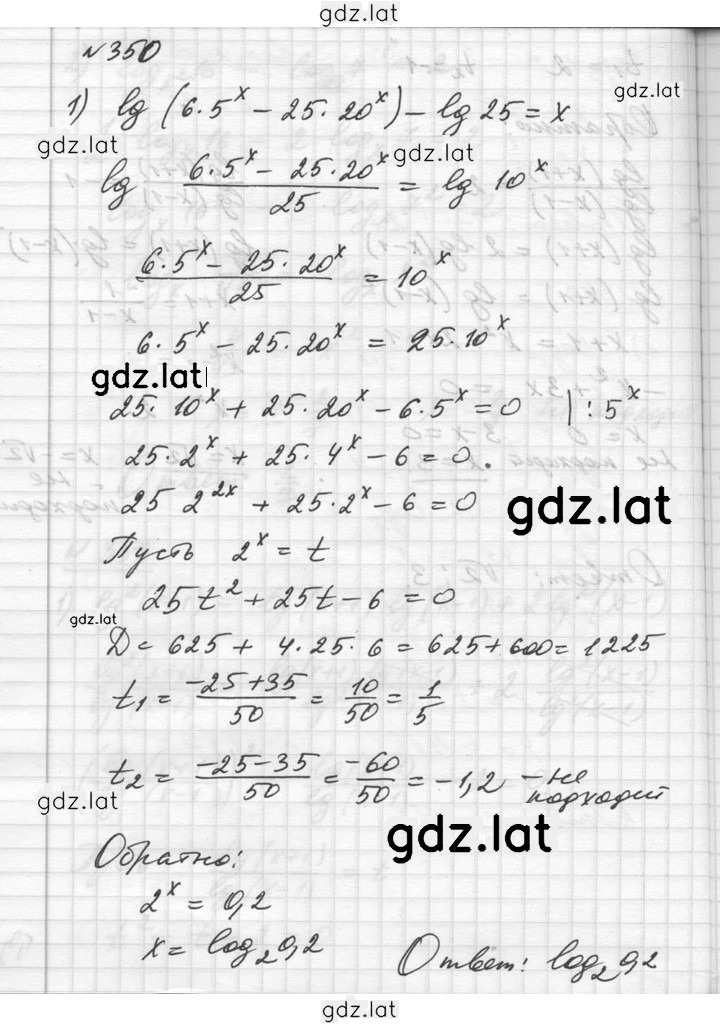 gdz.lat
№350
1) lg (6·5^x − 25·20^x) − lg 25 = x
gdz.lat
gdz.lat
lg (6·5^x − 25·20^x)/25 = lg 10^x
(6·5^x − 25·20^x)/25 = 10^x
6·5^x − 25·20^x = 25·10^x
gdz.lat
25·10^x + 25·20^x − 6·5^x = 0 | : 5^x
25·2^x + 25·4^x − 6 = 0.
25 2^{2x} + 25·2^x − 6 = 0
gdz.lat
Пусть 2^x = t
25t^2 + 25t − 6 = 0
gdz.lat
D = 625 + 4·25·6 = 625 + 600 = 1225
t_1 = (−25+35)/50 = 10/50 = 1/5
t_2 = (−25−35)/50 = −60/50 = −1,2 − не подходит
gdz.lat
gdz.lat
Обратно:
2^x = 0,2
x = log_2 0,2
Ответ: log_2 0,2
gdz.lat